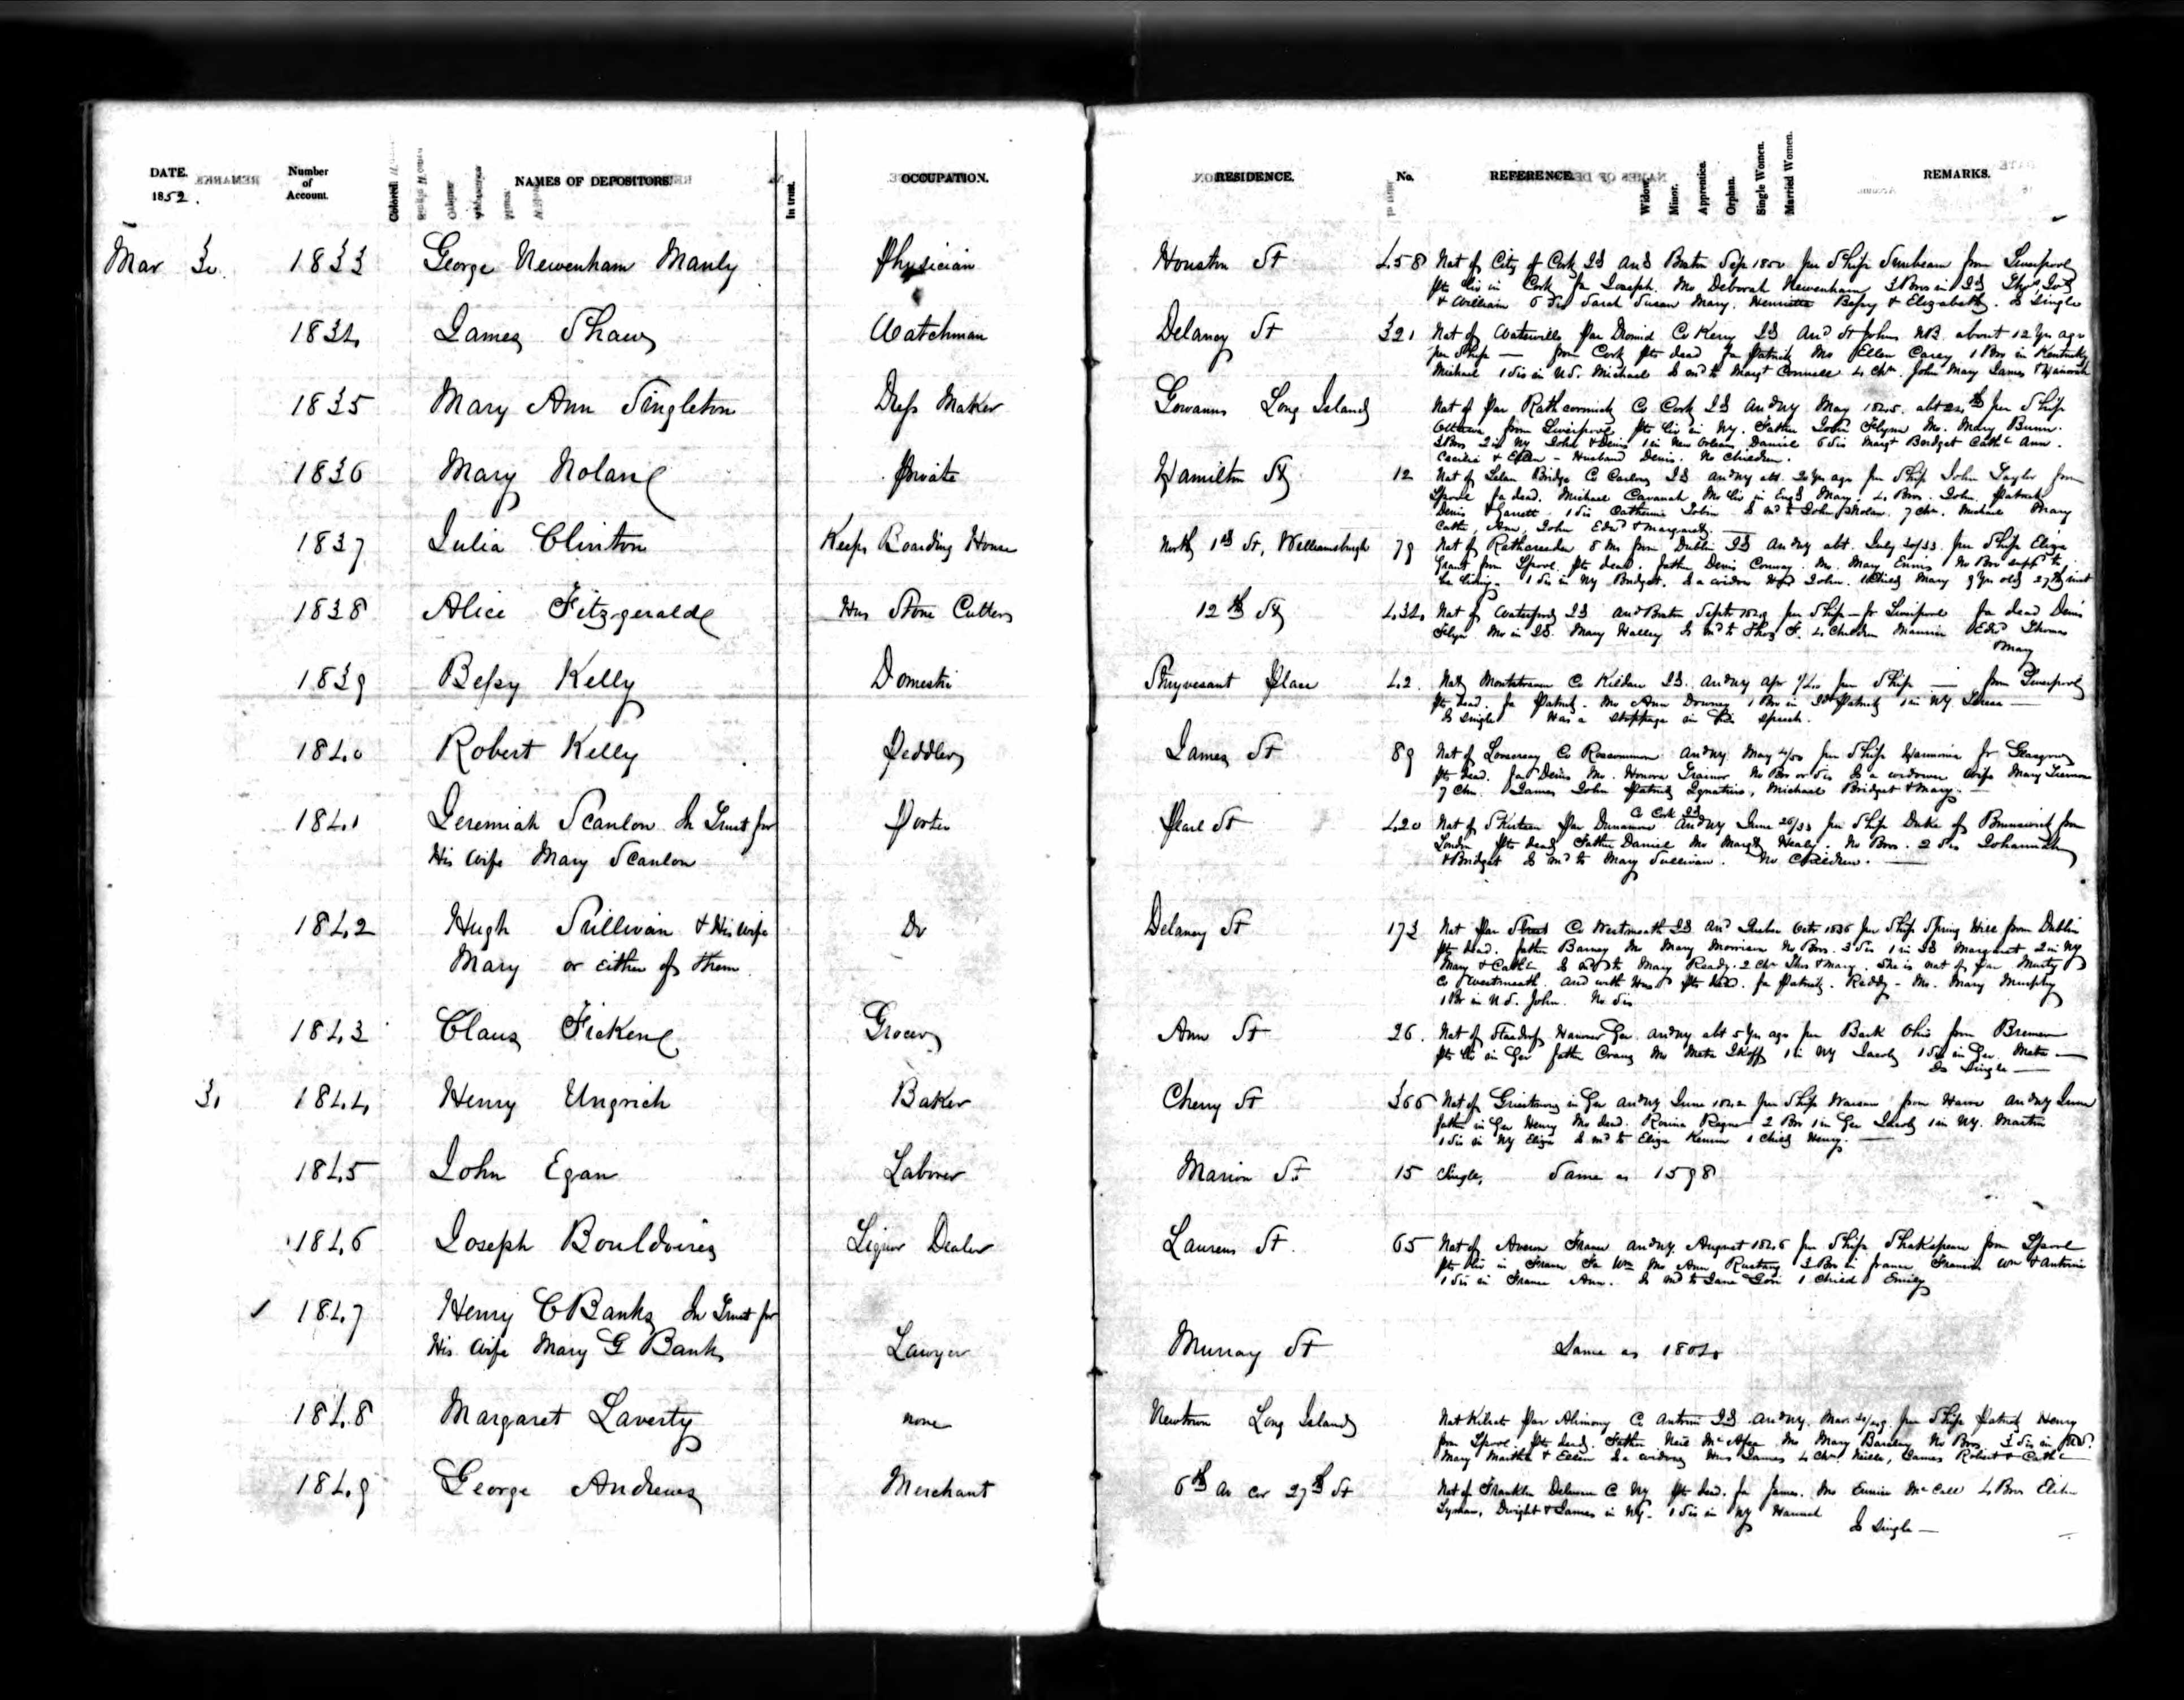 DATE. Number of Account. NAMES OF DEPOSITORS. In trust. OCCUPATION. RESIDENCE. No. REFERENCE. Widow. Minor. Apprentice. Orphan. Single Women. Married Women. REMARKS.
1852.
Mar 30 1833 George Newenham Manly Physician Houston St 458 Nat of City of Cork Id and Boston Sep 1850 per Ship Sunbeam from Liverpool
Pts liv in Cork Fa Joseph. Mo Deborah Newenham 3 Bros in Id Thos, Jos
& William 6 Sis Sarah Susan Mary. Henrietta Bessy & Elizabeth. Is Single
1834 James Shaw Watchman Delancy St 321 Nat of Waterville Par Co Kerry Id And St Johns NB. about 12 yrs ago
per Ship — from Cork Pts dead Fa Patrick Mo Ellen Carey 1 Bro in Kentucky
Michael 1 Sis in U.S. Michael Is md to Margt Connell 4 Chn. John Mary James & Hannah
1835 Mary Ann Singleton Dress Maker Gowanus Long Island Nat of Par Rathcormick Co Cork Id And NY May 1845. abt 24th per Ship
from Liverpool Pts liv in NY. Father John Flynn Mo. Mary
3 Bros 2 in NY John & Denis 1 in New Orleans Daniel 6 Sis Margt Bridget Cathe Ann.
Cecilia & Ellen - Husband Denis. No Children.
1836 Mary Noland Private Hamilton St 12 Nat of Bridge Co Carlow Id And NY abt. 2 yrs ago per Ship John Taylor from
Lpool Fa dead. Michael Cavanah Mo liv in Engd Mary. 4 Bros. John. Patrick
Denis & Garrett. 1 Sis Catherine Is md to John Nolan. 7 Chn. Michael Mary
Cathe, Ann, John Edwd & Margaret. —
1837 Julia Clinton Keeps Boarding House North 1st St, Williamsburgh 79 Nat of 8 Ms from Dublin Id And NY abt. July per Ship Eliza
Grant from Lpool. Pts dead. Father Denis Conway. Mo. Mary Ennis No Bro
be living. 1 Sis in NY Bridget. Is a widow Husd John. 1 Child Mary 9 yrs old 27th inst
1838 Alice Fitzgerald Hus Stone Cutter 12th St 434 Nat of Waterford Id And Boston Septr per Ship — fr Liverpool Fa dead Denis
Flynn Mo in Id. Mary Halley Is md to Thos F. 4 Children Maurice Edwd Thomas
Mary
1839 Bessy Kelly Domestic Stuyvesant Place 42 Nat Co Kildare Id. And NY Apr per Ship — from Liverpool
Pts dead. Fa Patrick. Mo Ann Downey 1 Bro in Id Patrick 1 in NY —
Is Single Has a stoppage in speech.
1840 Robert Kelly Peddler James St 89 Nat of Co Roscommon And NY May 4/50 per Ship fr Glasgow
Pts dead. Fa Denis Mo. Honora Trainor No Bro or Sis Is a widower Wife Mary
7 Chn. James John Patrick Ignatius, Michael Bridget & Mary. —
1841 Jeremiah Scanlon In Trust for Porter Pearl St 420 Nat of Par Co Cork Id And NY June per Ship Duke of Brunswick from
His Wife Mary Scanlon London Pts dead Father Daniel Mo Margt Healy. No Bros. 2 Sis Johannah
& Bridget Is md to Mary Sullivan. No Children. —
1842 Hugh Sullivan & His Wife Do Delancy St 173 Nat Par Street Co Westmeath Id. And Quebec Octr 1836 per Ship Spring Hill from Dublin
Mary or either of them Pts dead. Father Barney Mo Mary Morrison No Bros. 3 Sis 1 in Id Margaret 2 in NY
Mary & Cathe Is md to Mary Ready. 2 Chn Thos & Mary. She is nat of Par
Co Westmeath. And with Husd Pts dead. Fa Patrick. Reddy - Mo. Mary Murphy
1 Br in U.S. John. No Sis
1843 Claus Ficken Grocer Ann St 26. Nat of Hanover Ger. And NY abt 5 yrs ago per Bark Ohio from Bremen
Pts liv in Ger Father Mo Meta 1 in NY Jacob 1 Sis in Ger. Meta —
Is Single —
31 1844 Henry Ungrich Baker Cherry St 366 Nat of in Ger And NY June 1842 per Ship Warsaw from Havre And NY June
Father in Ger Henry Mo dead. Rosina 2 Bro 1 in Ger Jacob 1 in NY. Martin
1 Sis in NY Eliza Is md to Eliza 1 Child Henry. —
1845 John Egan Laborer Marion St 15 Single, Same as 1598
1846 Joseph Bouldoires Liquor Dealer Laurens St. 65 Nat of France And NY. August 1846 per Ship Shakspeare from Lpool
Pts liv in France Fa Wm Mo Ann 3 Bro in France Francis Wm & Antoine
1 Sis in France Ann. Is md to Jane 1 Child Emily
1847 Henry C Banks In Trust for
His Wife Mary G Banks Lawyer Murray St Same as 1804
1848 Margaret Laverty none Newtown Long Island Nat Par Co Antrim Id And NY. Mar. per Ship Patrick Henry
from Lpool. Pts dead. Father Neil McAfee Mo Mary Barclay No Bros 3 Sis in
Mary Martha & Ellen Is a widow Hus James 4 Chn. James Robert & Cathe
1849 George Andrews Merchant 6th Av cor 27th St Nat of Franklin Delaware C NY Pts dead. Fa James. Mo Eunice McCall 4 Bros
Lyman, Dwight & James in NY. 1 Sis in NY Hannah
Is Single —